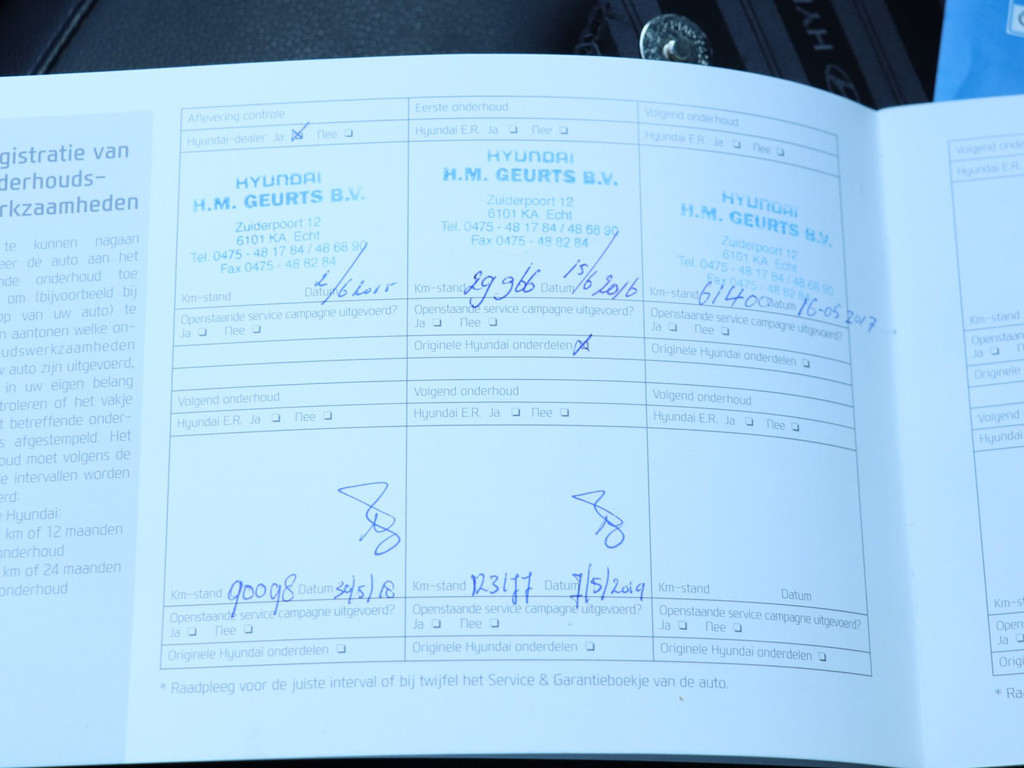 HYU
gistratie van
derhouds-
rkzaamheden
te kunnen nagaan
eer de auto aan het
nde onderhoud toe
om (bijvoorbeeld bij
op van uw auto) te
n aantonen welke on-
udswerkzaamheden
w auto zijn uitgevoerd,
in uw eigen belang
troleren of het vakje
t betreffende onder-
s afgestempeld. Het
oud moet volgens de
e intervallen worden
erd:
e Hyundai:
km of 12 maanden
onderhoud
km of 24 maanden
onderhoud
Aflevering controle
Hyundai-dealer Ja Nee
HYUNDAI
H.M. GEURTS B.V.
Zuiderpoort 12
6101 KA Echt
Tel. 0475 - 48 17 84 / 48 68 90
Fax 0475 - 48 82 84
Km-stand Datum 2/6 2015
Openstaande service campagne uitgevoerd?
Ja Nee
Eerste onderhoud
Hyundai E.R. Ja Nee
HYUNDAI
H.M. GEURTS B.V.
Zuiderpoort 12
6101 KA Echt
Tel. 0475 - 48 17 84 / 48 68 90
Fax 0475 - 48 82 84
Km-stand 29966 Datum 15/6 2016
Openstaande service campagne uitgevoerd?
Ja Nee
Originele Hyundai onderdelen
Volgend onderhoud
Hyundai E.R. Ja Nee
HYUNDAI
H.M. GEURTS B.V.
Zuiderpoort 12
6101 KA Echt
Tel. 0475 - 48 17 84 / 48 68 90
Fax 0475 - 48 82 84
Km-stand 61400 Datum 16-05 2017
Openstaande service campagne uitgevoerd?
Ja Nee
Originele Hyundai onderdelen
Volgend onderhoud
Hyundai E.R. Ja Nee
Km-stand 90098 Datum 30/5/18
Openstaande service campagne uitgevoerd?
Ja Nee
Originele Hyundai onderdelen
Volgend onderhoud
Hyundai E.R. Ja Nee
Km-stand 123177 Datum 7/5/2019
Openstaande service campagne uitgevoerd?
Ja Nee
Originele Hyundai onderdelen
Volgend onderhoud
Hyundai E.R. Ja Nee
Km-stand Datum
Openstaande service campagne uitgevoerd?
Ja Nee
Originele Hyundai onderdelen
* Raadpleeg voor de juiste interval of bij twijfel het Service & Garantieboekje van de auto.
Volgend onde
Hyundai E.R.
Km-stand
Openstaan
Ja
Originele
Volgend
Hyundai
Km-st
Open
Ja
Origi
* Ra